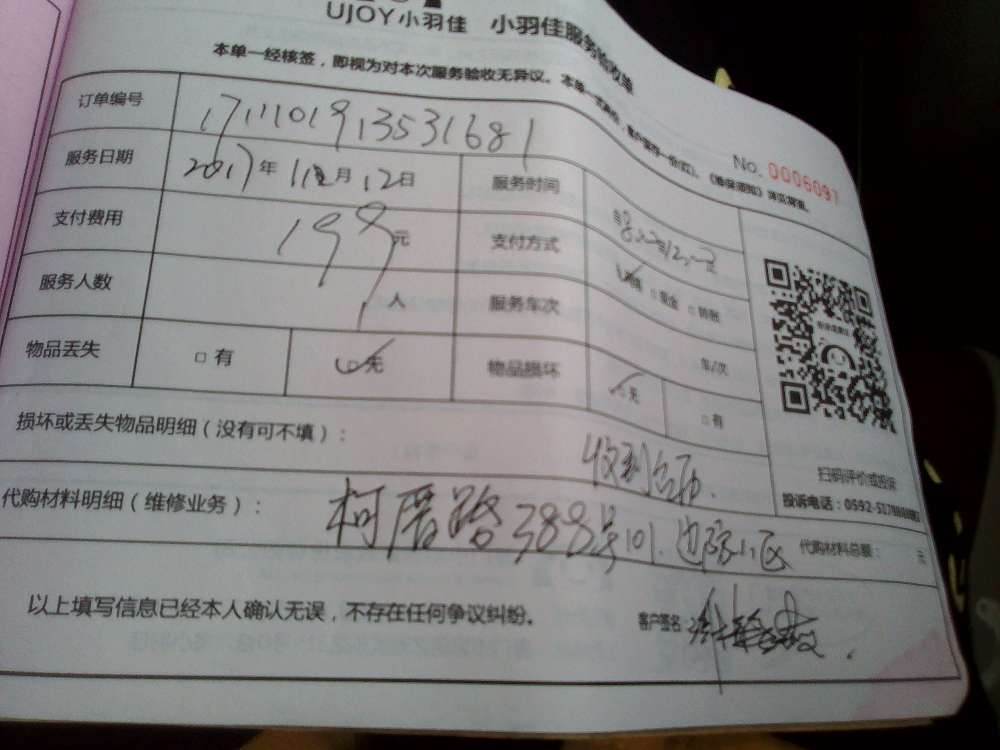 UJOY小羽佳 小羽佳服务验收单
本单一经核签，即视为对本次服务验收无异议。本单一式两份，客户留存一份(红)，
No. 0006091
订单编号 1711101913531681
服务日期 2017年11月12日 服务时间
支付费用 199元 支付方式 现金 □转账
服务人数 1人 服务车次 车/次
物品丢失 □有 无 物品损坏 无 □有
损坏或丢失物品明细（没有可不填）：
扫码评价或投诉
投诉电话：0592-
代购材料明细（维修业务）： 柯厝路388号101. 边防小区 代购材料总额： 元
以上填写信息已经本人确认无误，不存在任何争议纠纷。 客户签名：